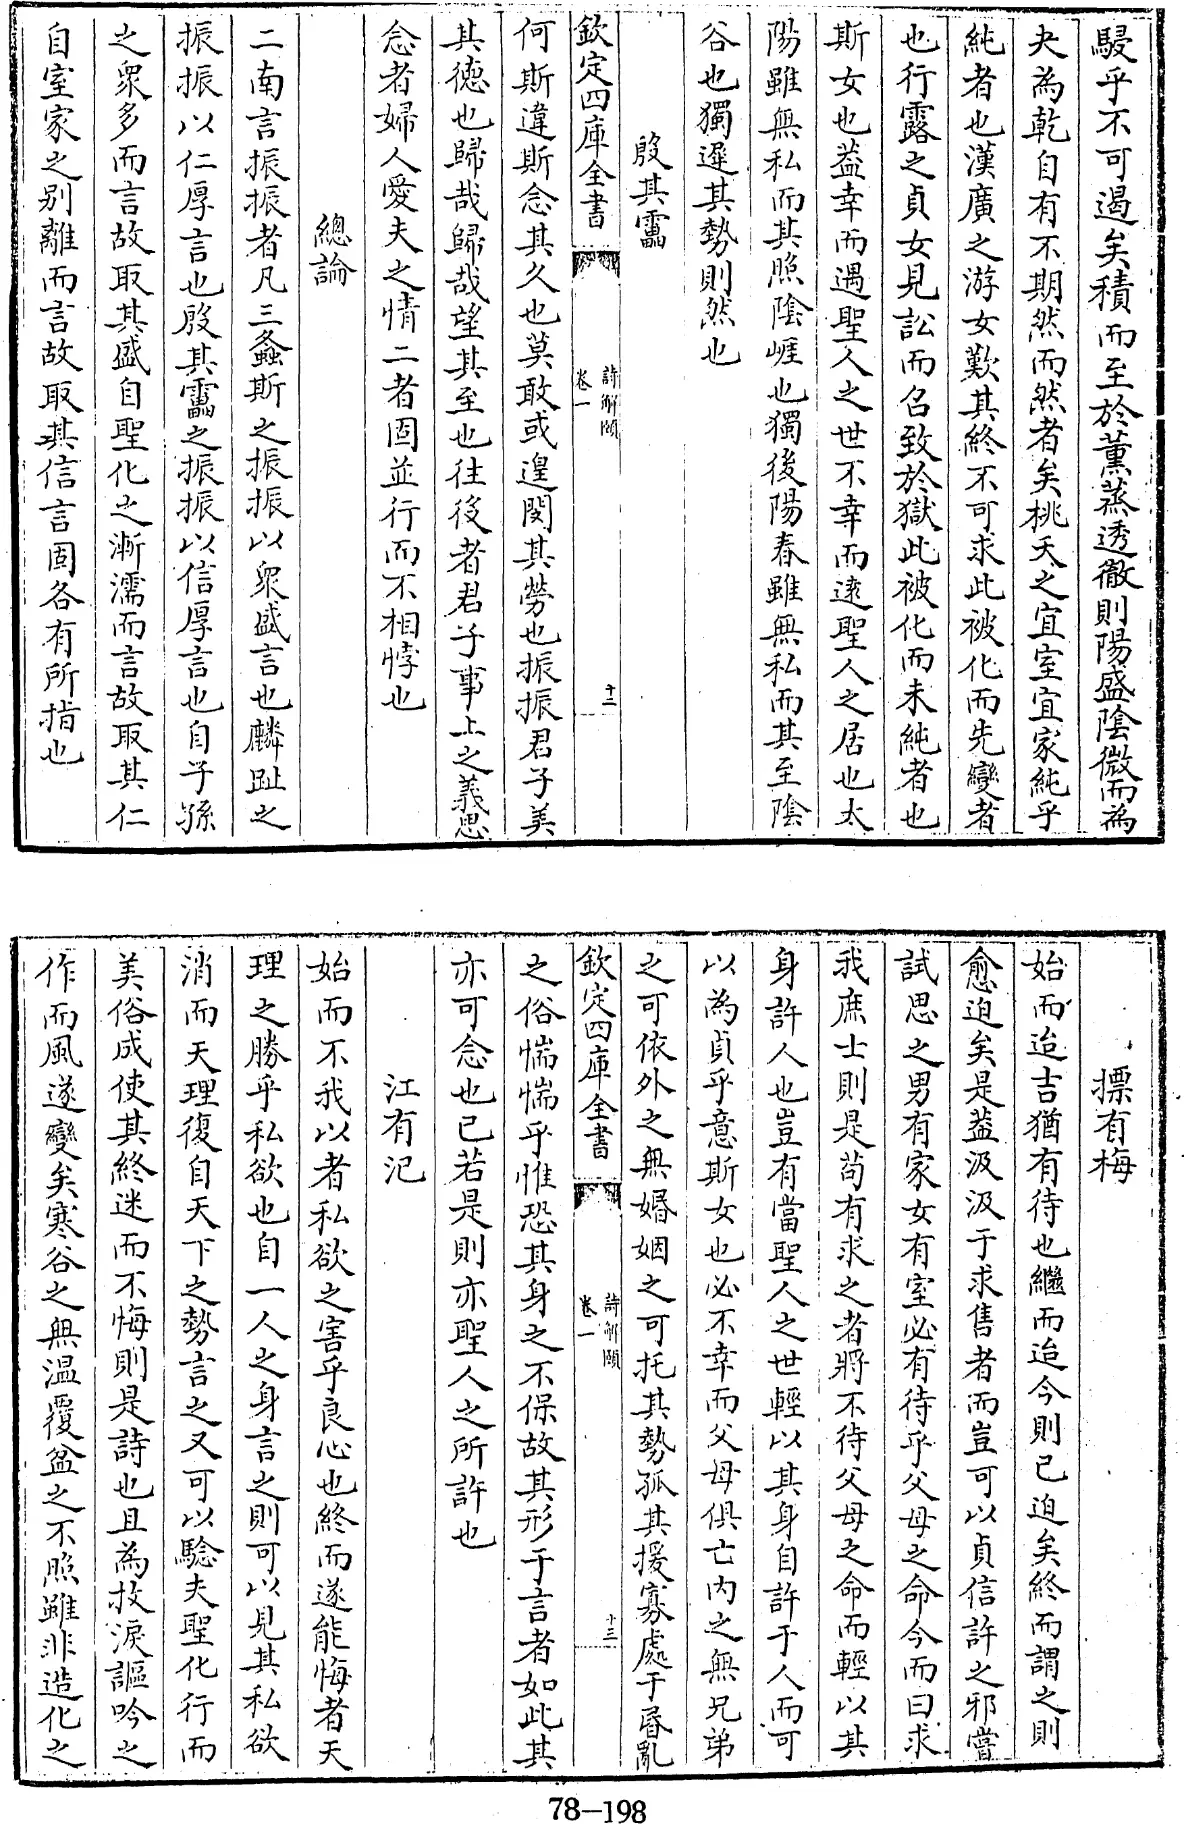 駸乎不可遏矣積而至於薰蒸透徹則陽盛陰微而為
夬為乾自有不期然而然者矣桃夭之宜室宜家純乎
純者也漢廣之游女歎其終不可求此被化而先變者
也行露之貞女見訟而召致於獄此被化而未純者也
斯女也葢幸而遇聖人之世不幸而逺聖人之居也太
陽雖無私而其照陰崕也獨後陽春雖無私而其至陰
谷也獨遲其勢則然也
殷其靁
欽定四庫全書
詩解頤
卷一
十二
何斯違斯念其久也莫敢或遑閔其勞也振振君子美
其德也歸哉歸哉望其至也徃役者君子事上之義思
念者婦人愛夫之情二者固並行而不相悖也
總論
二南言振振者凡三螽斯之振振以衆盛言也麟趾之
振振以仁厚言也殷其靁之振振以信厚言也自子孫
之衆多而言故取其盛自聖化之漸濡而言故取其仁
自室家之别離而言故取其信言固各有所指也
摽有梅
始而迨吉猶有待也繼而迨今則已迫矣終而謂之則
愈迫矣是葢汲汲于求售者而豈可以貞信許之邪嘗
試思之男有家女有室必有待乎父母之命今而曰求
我庶士則是苟有求之者將不待父母之命而輕以其
身許人也豈有當聖人之世輕以其身自許于人而可
以為貞乎意斯女也必不幸而父母俱亡内之無兄弟
之可依外之無婚姻之可托其勢孤其援寡處于昬亂
欽定四庫全書
詩解頤
卷一
十三
之俗惴惴乎惟恐其身之不保故其形于言者如此其
亦可念也已若是則亦聖人之所許也
江有汜
始而不我以者私欲之害乎良心也終而遂能悔者天
理之勝乎私欲也自一人之身言之則可以見其私欲
消而天理復自天下之勢言之又可以驗夫聖化行而
美俗成使其終迷而不悔則是詩也且為抆淚謳吟之
作而風遂變矣寒谷之無溫覆盆之不照雖非造化之
78-198